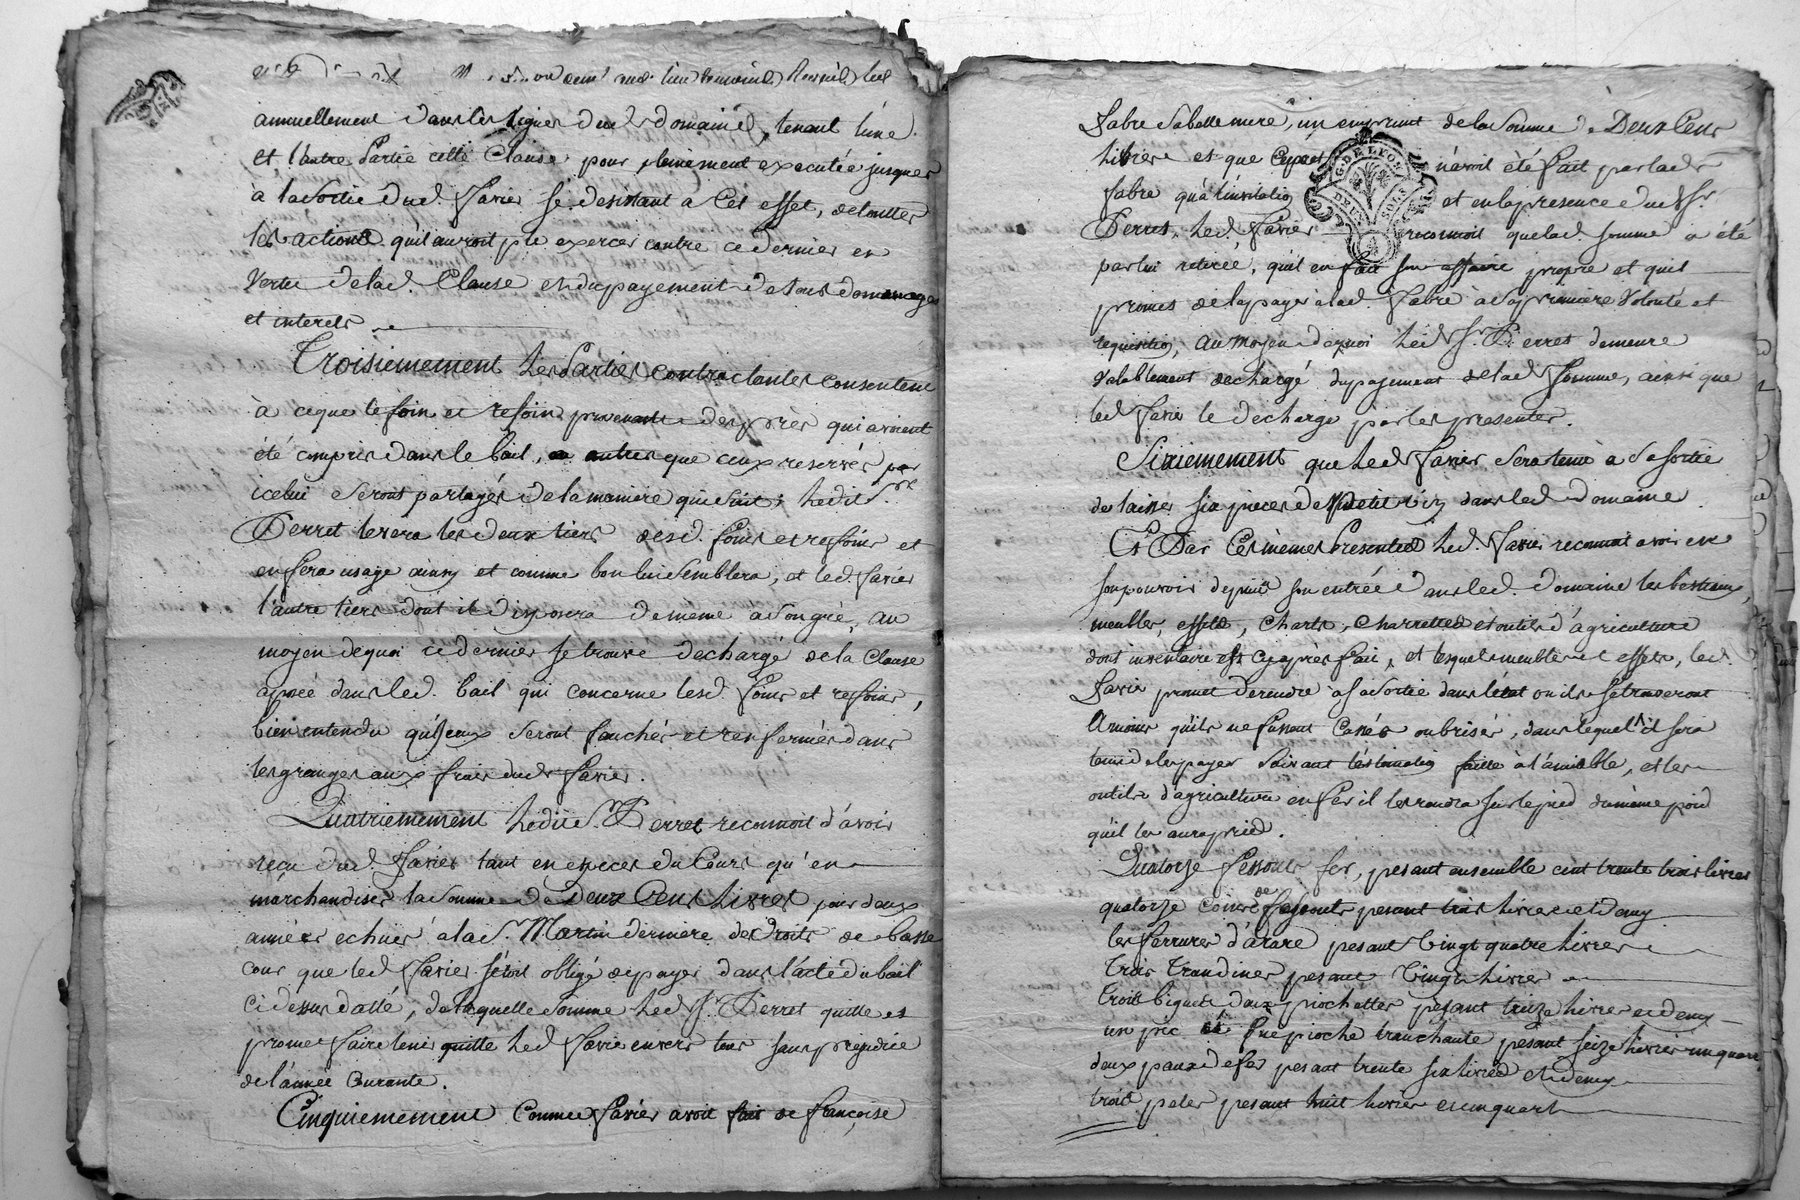 annuellement dans les vignes dud. domaine, tenant l'une
et l'autre Partie cette Clause pour pleinement executée jusques
à la sortie dud. Favier se desistant a cet effet, de toutes
les actions qu'il auroit pu exercer contre ce dernier en
vertu de lad. Clause et du payement de tous domages
et interets
Troisiemement Les Parties contractantes consentent
à ce que le foin et refoin provenant des près qui avoient
été compris dans le bail, autres que ceux reservés par
icelui seront partagés de la maniere qui suit; Ledit Sr.
Perret levera les deux tiers desd. foins et refoins et
en fera usage ainsy et comme bon lui semblera, et led. Favier
l'autre tiers dont il disposera de meme a son gré, au
moyen de quoi ce dernier se trouve dechargé de la Clause
aposée dans led. bail qui concerne lesd. foins et refoins,
bien entendu qu'iceux seront fauchés et renfermés dans
les granges aux frais dud. Favier.
Quatriemement Ledit Sr. Perret reconnoit d'avoir
reçu dud. Favier tant en especes du Cours qu'en
marchandises la somme de Deux Cens Livres pour deux
années echues à la St. Martin derniere des Droits de basse
cour que led. Favier s'etoit obligé de payer dans l'acte du bail
ci dessus datté, de laquelle somme Led. Sr. Perret quitte et
promet faire tenir quitte Led. Favier envers tous sans prejudice
de l'année Courante.
Cinquiemement Comme Favier avoit fait de françoise
Fabre sa belle mere, un emprunt de la somme de Deux Cens
Livres et que n'avoit été fait par lad.
fabre qu'à l'invitation et en la presence dud. Sr.
Perret, Led. Favier reconnoit que lad. somme a été
par lui retirée, qu'il en fait son affaire propre et qu'il
promet de la payer a lad. Fabre à sa premiere volonté et
requisition, au moyen de quoi Led. Sr. Perret demeure
valablement dechargé du payement de lad. somme, ainsi que
led. Favier le decharge par les presentes.
Sixiemement que Led. Favier sera tenu à sa sortie
de laisser six pieces de petit vin dans led. domaine
Et Par Ces mèmes Presentes Led. Favier reconnoit avoir en
son pouvoir depuis son entrée dans led. domaine les bestiaux,
meubles, effets, Charts, Charrettes et outils d'agriculture
dont inventaire est cy après fait, et lesquels meubles et effets, led.
Favier promet de rendre à sa sortie dans l'état ou ils se trouveront
a moins qu'ils ne fussent Cassés ou brisés, dans lequel il sera
tenu de les payer suivant l'estimation faitte à l'amiable, et les
outils d'agriculture en fer il les rendra sur le pied du mème poid
qu'il les aura pried.
Quatorze fessouts fer, pesant ensemble cent trente trois livres
quatorze de fessouts pesant trois livres et demy
les ferrures d'arare pesant vingt quatre Livres
trois trandines pesant vingt Livres
trois bigues deux piochettes pesant treize livres et demy
un pic et une pioche tranchante pesant seize livres un quart
deux paux de fer pesant trente six livres et demy
trois peles pesant huit livres et un quart
G. DE LYON
DEUX SOLS